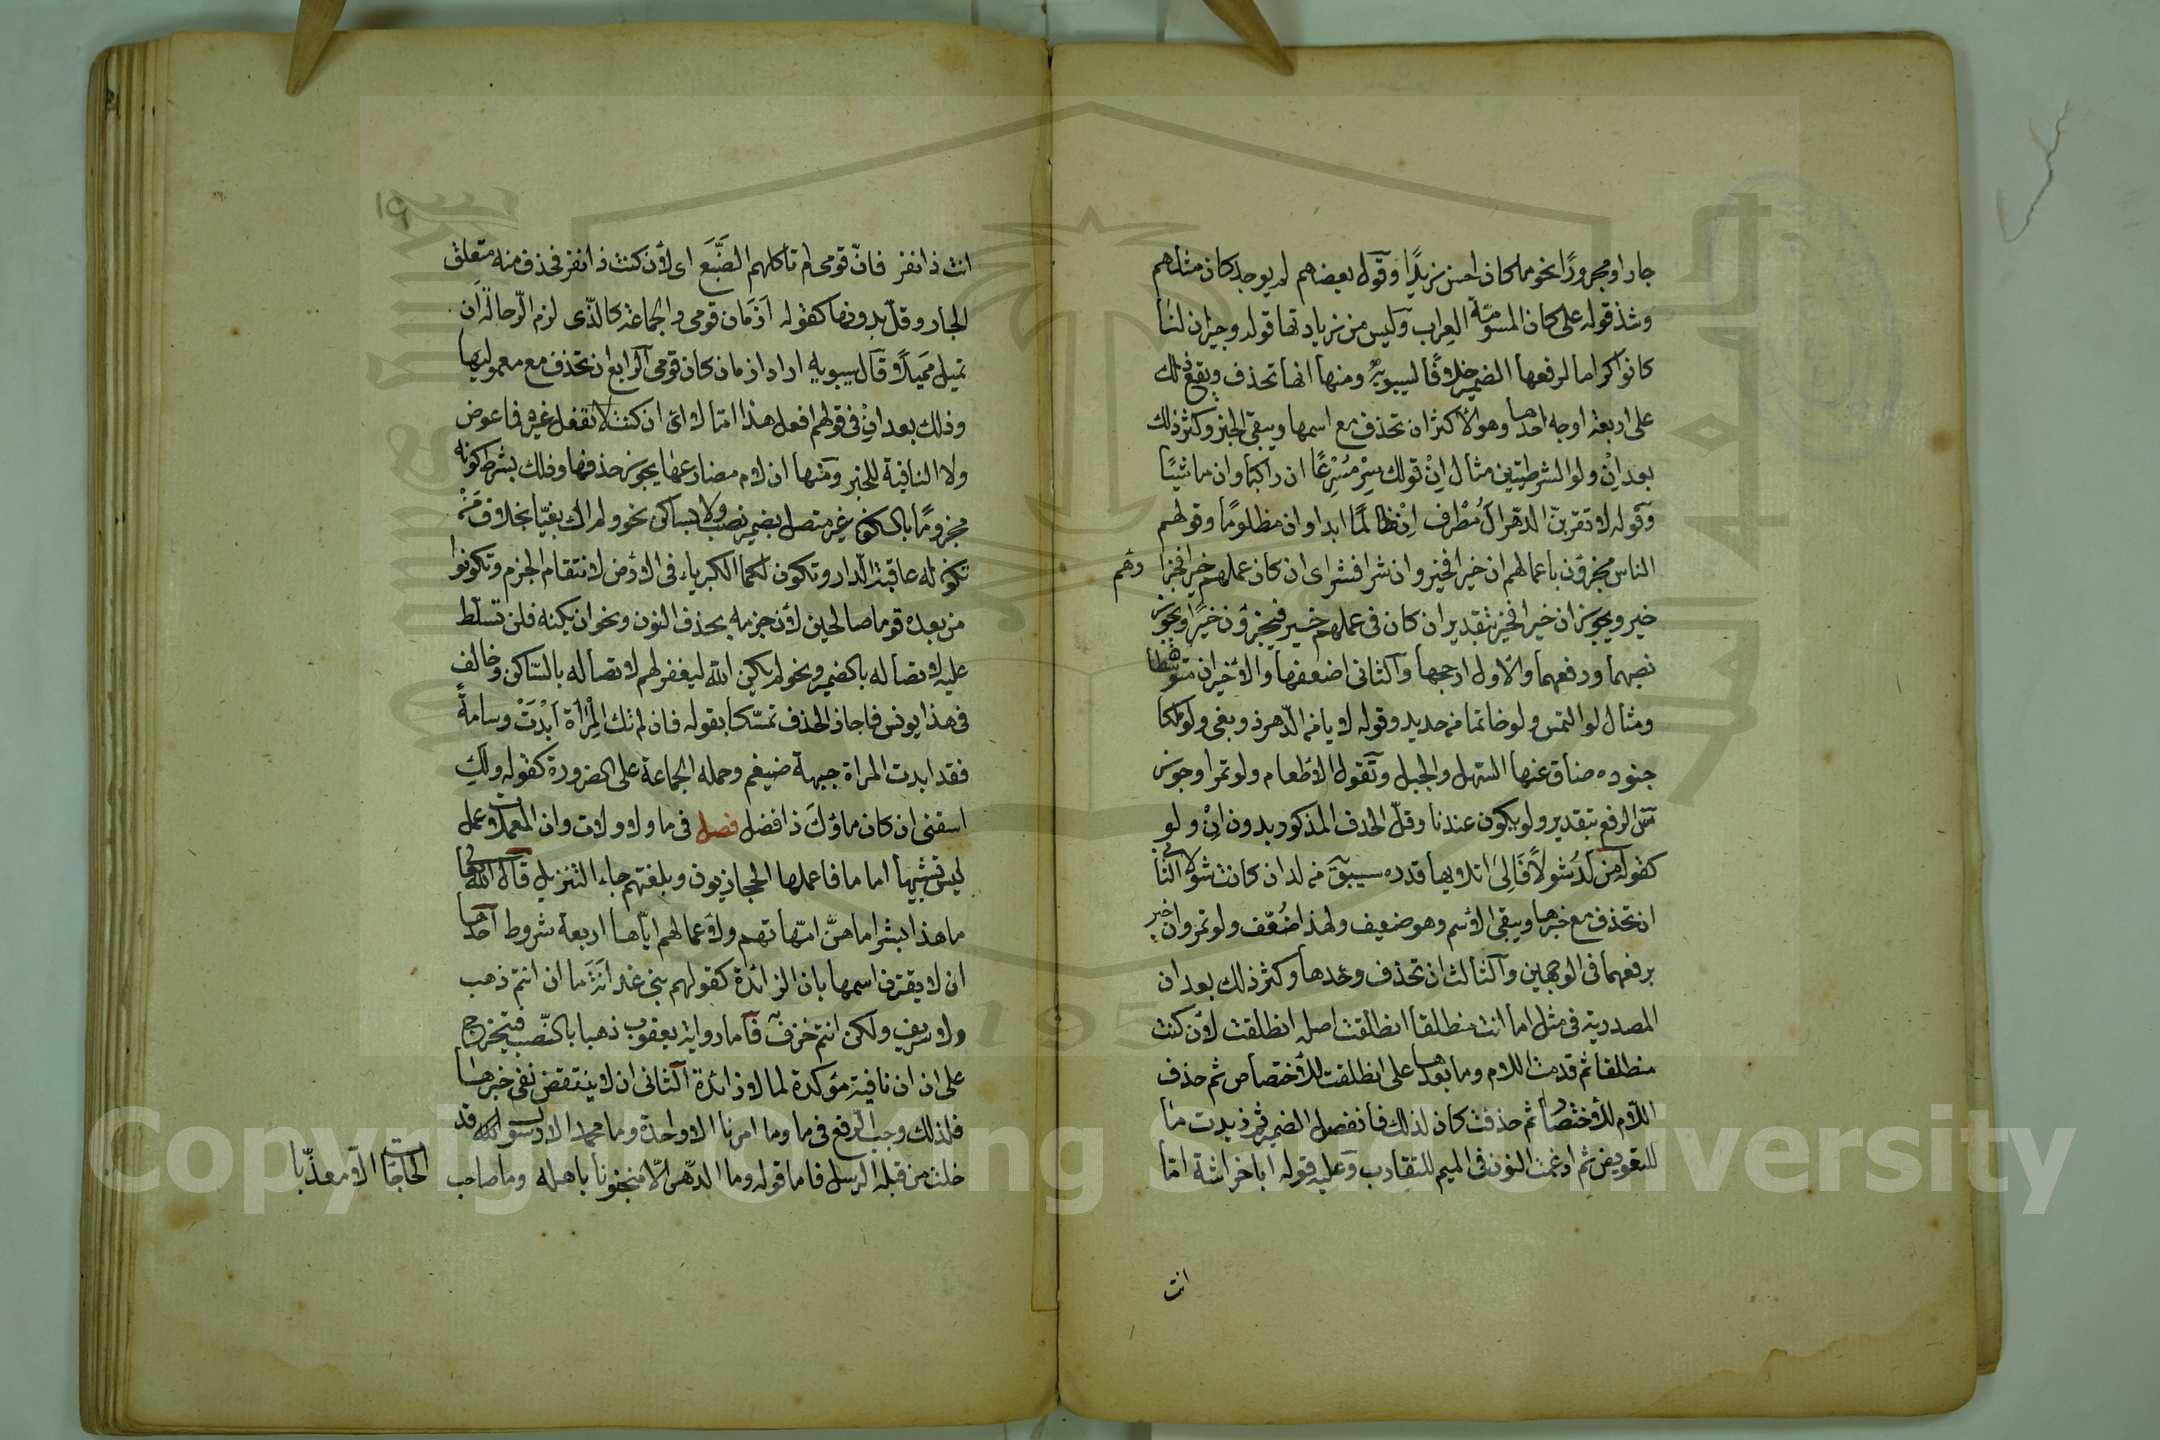 جارا ومجرورًا نحو ما كان احسن زيدًا وقول بعضهم لم يوجد كان مثلهم
وشذ قوله على كان المسوّمة العراب وليس من زيادتها قوله وجيران لنا
كانوا كرام لرفعها الضمير خلافًا لسيبويه ومنها انها تحذف ويقع ذلك
على اربعة اوجه احدها وهو الأكثر ان تحذف مع اسمها ويبقى الخبر وكثر ذلك
بعد اِنْ ولو الشرطيتين مثال اِنْ قولك سِرْ مُسْرِعًا ان راكبا وان ماشيًا
وقوله لا تقربن الدهر آل مُطْرف اِنْ ظالمًا ابدا وان مظلومًا وقولهم
الناس مجزؤن باعمالهم ان خيرا فخير وان شرا فشر اى ان كان عملهم خيرا فجزاؤهم
خير ويجوز ان خير فخيرا بتقدير ان كان فى عملهم خير فيجزؤن خيرًا ويجوز
نصبهما ورفعهما والأول ارجحها والثانى اضعفها والأخيران متوسطان
ومثال لو التمس ولو خاتما من حديد وقوله لا يامن الدهر ذو بغى ولو ملكا
جنوده ضاق عنها السهل والجبل وتقول الأطعام ولو تمرا وجوز
س الرفع بتقدير ولو يكون عندنا وقلّ الحذف المذكور بدون اِنْ ولو
كقوله مِن لَدُ شولًا فَالِى اتلايها قدره سيبويه من لد ان كانت شولا الثانى
ان تحذف مع خبرها ويبقى الأسم وهو ضعيف ولهذا ضُعّف ولو تمر وان خير
برفعهما فى الوجهين والثالث ان تحذف وحدها وكثر ذلك بعد ان
المصدرية فى مثل اما انت منطلقا انطلقت اصله انطلقت لأن كنت
منطلقا ثم قدمت اللام وما بعدها على انطلقت للأختصاص ثم حذف
اللام للأختصار ثم حذفت كان لذلك فانفصل الضمير ثم زيدت ما
للتعويض ثم ادغمت النون فى الميم للتقارب وعليه قوله ابا خراشة امّا
انت
١٩
انت ذا نفر فانّ قومى لم تاكلهم الضَّبُعَ اى لأن كنت ذا نفر فحذف منه متعلق
الجار وقلّ بدونها كقوله اَزْمَان قومى والجماعة كالذى لزم الرحالة اَن
تميل مميلًا وقال سيبويه اراد ازمان كان قومى الرابع ان تحذف مع معموليها
وذلك بعد اِنْ فى قولهم افعل هذا امّا لا اى ان كنت لا تفعل غيره فما عوض
ولا النافية للخبر ومنها ان لام مضارعها يجوز حذفها وذلك بشرط كونه
مجزومًا بالسكون غير متصل بضمير نصب ولا بساكن نحو ولم اك بغيّا بخلاف مَنْ
تكون له عاقبة الدار وتكون لكما الكبرياء فى الأرض لانتقام الجزم وتكونوا
من بعده قوما صالحين لأن جزمه بحذف النون ونحو ان يكنه فلن تسلّط
عليه لاتصاله بالضمير ونحو لم يكن الله ليغفر لهم لاتصاله بالسّاكن وخالف
فى هذا يونس فاجاز الحذف تمسّكا بقوله فان لم تك المِرْاٰة اَبْدَتْ وسامةً
فقد ابدت المراة جبهة ضيغم وحمله الجماعة على الضرورة كقوله ولاكِ
اسقنى ان كان ماؤك ذا فضل فصل فى ما ولا ولات وان المعملات عمل
ليس تشبيها اما ما فاعملها الحجازيون وبلغتهم جاء التنزيل قال الله تعالى
ما هذا بشرا ما هنّ امّهاتهم ولأعمالهم ايّاها اربعة شروط احدها
ان لا يقترن اسمها بان الزائدة كقولهم بنى غدانة ما ان انتم ذهب
ولا صريف ولكن انتم خزف فاما رواية يعقوب ذهبا بالنّصب فتخرج
على ان ان نافية مؤكدة لما لا زائدة الثانى ان لا ينتقض نفى خبرها
فلذلك وجب الرفع فى ما وما امرنا الا واحدة وما محمد الا رسول قد
خلت من قبله الرسل فاما قوله وما الدّهر الّا منجنونا باهله وما صاحب الحاجات الّا معذّبا